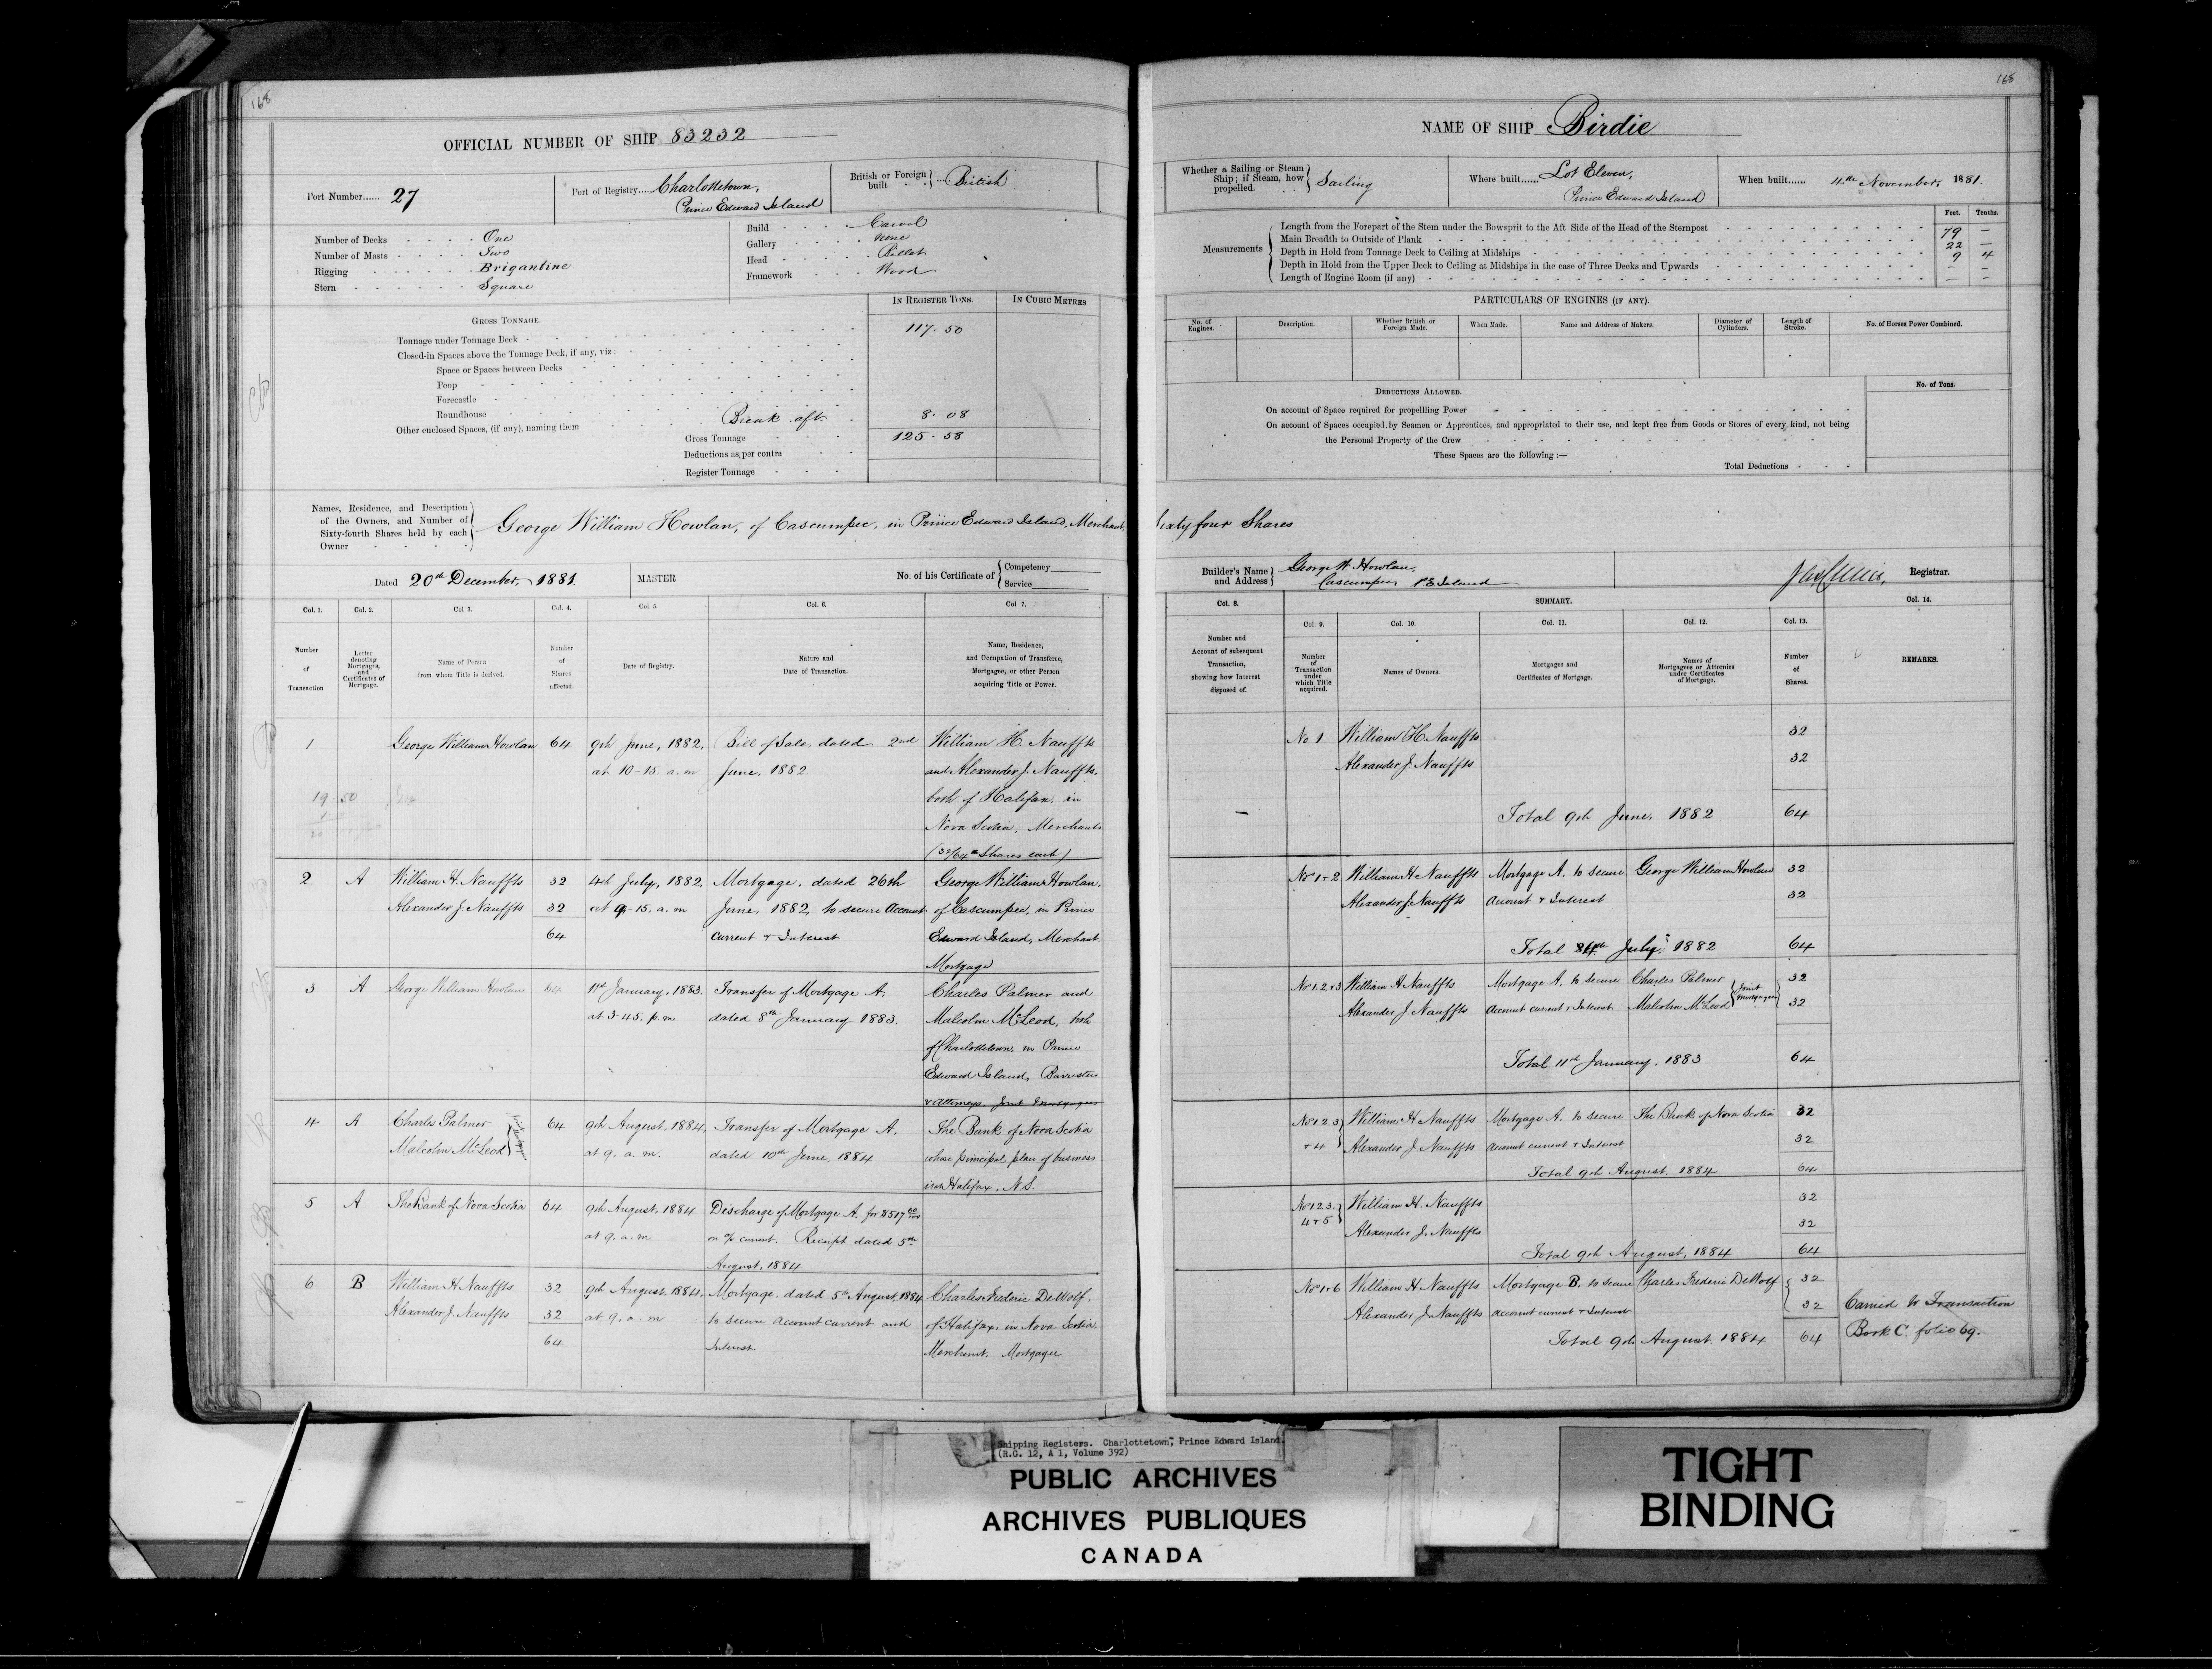 168
OFFICIAL NUMBER OF SHIP 83232
Port Number...... 27
Port of Registry..... Charlottetown,
Prince Edward Island
British or Foreign built } ... British
Number of Decks One
Number of Masts Two
Rigging Brigantine
Stern Square
Build Carvel
Gallery none
Head Billet
Framework Wood
IN REGISTER TONS.
IN CUBIC METRES
GROSS TONNAGE.
Tonnage under Tonnage Deck 117.50
Closed-in Spaces above the Tonnage Deck, if any, viz:
Space or Spaces between Decks
Poop
Forecastle
Roundhouse
Other enclosed Spaces, (if any), naming them Break aft. 8.08
Gross Tonnage 125.58
Deductions as per contra
Register Tonnage
Names, Residence, and Description
of the Owners, and Number of
Sixty-fourth Shares held by each
Owner
George William Howlan, of Cascumpec, in Prince Edward Island, Merchant,
Dated 20th December, 1881.
MASTER
No. of his Certificate of { Competency
Service
Col. 1. Col. 2. Col 3. Col. 4. Col. 5. Col. 6. Col 7.
Number of Transaction
Letter denoting Mortgages, and Certificates of Mortgage.
Name of Person from whom Title is derived.
Number of Shares affected.
Date of Registry.
Nature and Date of Transaction.
Name, Residence, and Occupation of Transferee, Mortgagee, or other Person acquiring Title or Power.
1 George William Howlan 64 9th June, 1882, Bill of Sale, dated 2nd William H. Nauffts
at 10-15 a.m June, 1882. and Alexander J. Nauffts,
both of Halifax, in
Nova Scotia, Merchants
(32/64th Shares each)
19 50
2 A William H. Nauffts 32 4th July, 1882, Mortgage, dated 26th George William Howlan,
Alexander J. Nauffts 32 at 9-15, a.m June, 1882, to secure Account of Cascumpec, in Prince
64 current & Interest Edward Island, Merchant.
Mortgage
3 A George William Howlan 64 11th January, 1883. Transfer of Mortgage A. Charles Palmer and
at 3-45, p.m dated 8th January 1883. Malcolm McLeod, both
of Charlottetown, in Prince
Edward Island, Barristers
& Attorneys. Joint Mortgagees
4 A Charles Palmer 64 9th August, 1884, Transfer of Mortgage A. The Bank of Nova Scotia
Malcolm McLeod } at 9. a.m. dated 10th June, 1884 whose principal place of business
is at Halifax, N.S.
5 A The Bank of Nova Scotia 64 9th August, 1884 Discharge of Mortgage A. for
at 9. a.m on a/c current. Receipt dated 5th
August, 1884
6 B William H Nauffts 32 9th August, 1884, Mortgage, dated 5th August, 1884 Charles Frederic DeWolf,
Alexander J. Nauffts 32 at 9. a.m to secure account current and of Halifax, in Nova Scotia,
64 Interest. Merchant. Mortgagee
168
NAME OF SHIP Birdie
Whether a Sailing or Steam
Ship; if Steam, how
propelled. } Sailing
Where built...... Lot Eleven,
Prince Edward Island
When built...... 4th November, 1881.
Feet. Tenths.
Measurements
Length from the Forepart of the Stem under the Bowsprit to the Aft Side of the Head of the Sternpost 79 —
Main Breadth to Outside of Plank 22 —
Depth in Hold from Tonnage Deck to Ceiling at Midships 9 4
Depth in Hold from the Upper Deck to Ceiling at Midships in the case of Three Decks and Upwards — —
Length of Engine Room (if any) — —
PARTICULARS OF ENGINES (IF ANY).
No. of Engines. Description. Whether British or Foreign Made. When Made. Name and Address of Makers. Diameter of Cylinders. Length of Stroke. No. of Horses Power Combined.
DEDUCTIONS ALLOWED.
No. of Tons.
On account of Space required for propelling Power
On account of Spaces occupied by Seamen or Apprentices, and appropriated to their use, and kept free from Goods or Stores of every kind, not being
the Personal Property of the Crew
These Spaces are the following :—
Total Deductions
Sixty four Shares
Builder's Name and Address } George W. Howlan,
Cascumpec P.E. Island
Registrar.
SUMMARY.
Col. 8. Col. 9. Col. 10. Col. 11. Col. 12. Col. 13. Col. 14.
Number and Account of subsequent Transaction, showing how Interest disposed of.
Number of Transaction under which Title acquired.
Names of Owners.
Mortgages and Certificates of Mortgage.
Names of Mortgagees or Attornies under Certificates of Mortgage.
Number of Shares.
REMARKS.
No 1 William H Nauffts 32
Alexander J. Nauffts 32
— Total 9th June, 1882 64
No 1 & 2 William H Nauffts Mortgage A. to secure George William Howlan 32
Alexander J. Nauffts Account & Interest 32
Total 4th July, 1882 64
No 1. 2 & 3 William H Nauffts Mortgage A. to secure Charles Palmer } Joint 32
Alexander J. Nauffts Account current & Interest Malcolm McLeod } Mortgagees 32
Total 11th January, 1883 64
No 1. 2. 3 William H Nauffts Mortgage A. to secure The Bank of Nova Scotia 32
& 4 Alexander J. Nauffts Account current & Interest 32
Total 9th August, 1884 64
No 1. 2. 3. William H. Nauffts 32
4 & 5 Alexander J. Nauffts 32
Total 9th August, 1884 64
No 1 & 6 William H Nauffts Mortgage B. to secure Charles Frederic DeWolf 32
Alexander J Nauffts account current & Interest 32 Carried to Transaction
Total 9th August, 1884 64 Book C. folio 69.
Shipping Registers. Charlottetown, Prince Edward Island.
(R.G. 12, A 1, Volume 392)
PUBLIC ARCHIVES
ARCHIVES PUBLIQUES
CANADA
TIGHT
BINDING